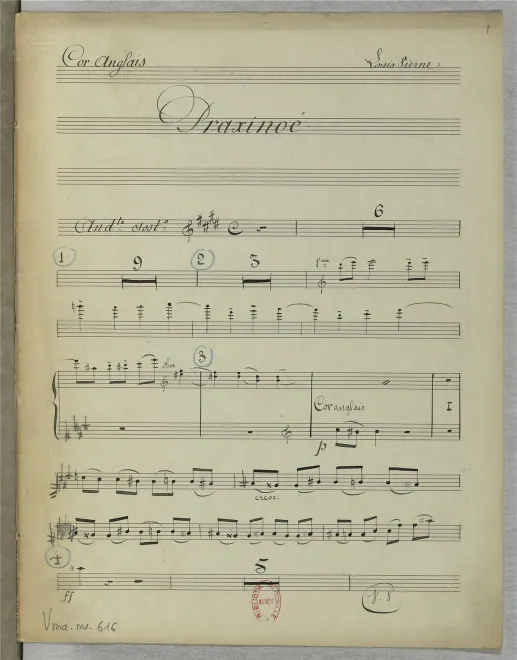 1
Cor Anglais Louis Vierne
Praxinoé
Andte sosto 6
1 9 2 3
3
Cor anglais I
p
cresc.
4 5
ff
Vma. ms. 616